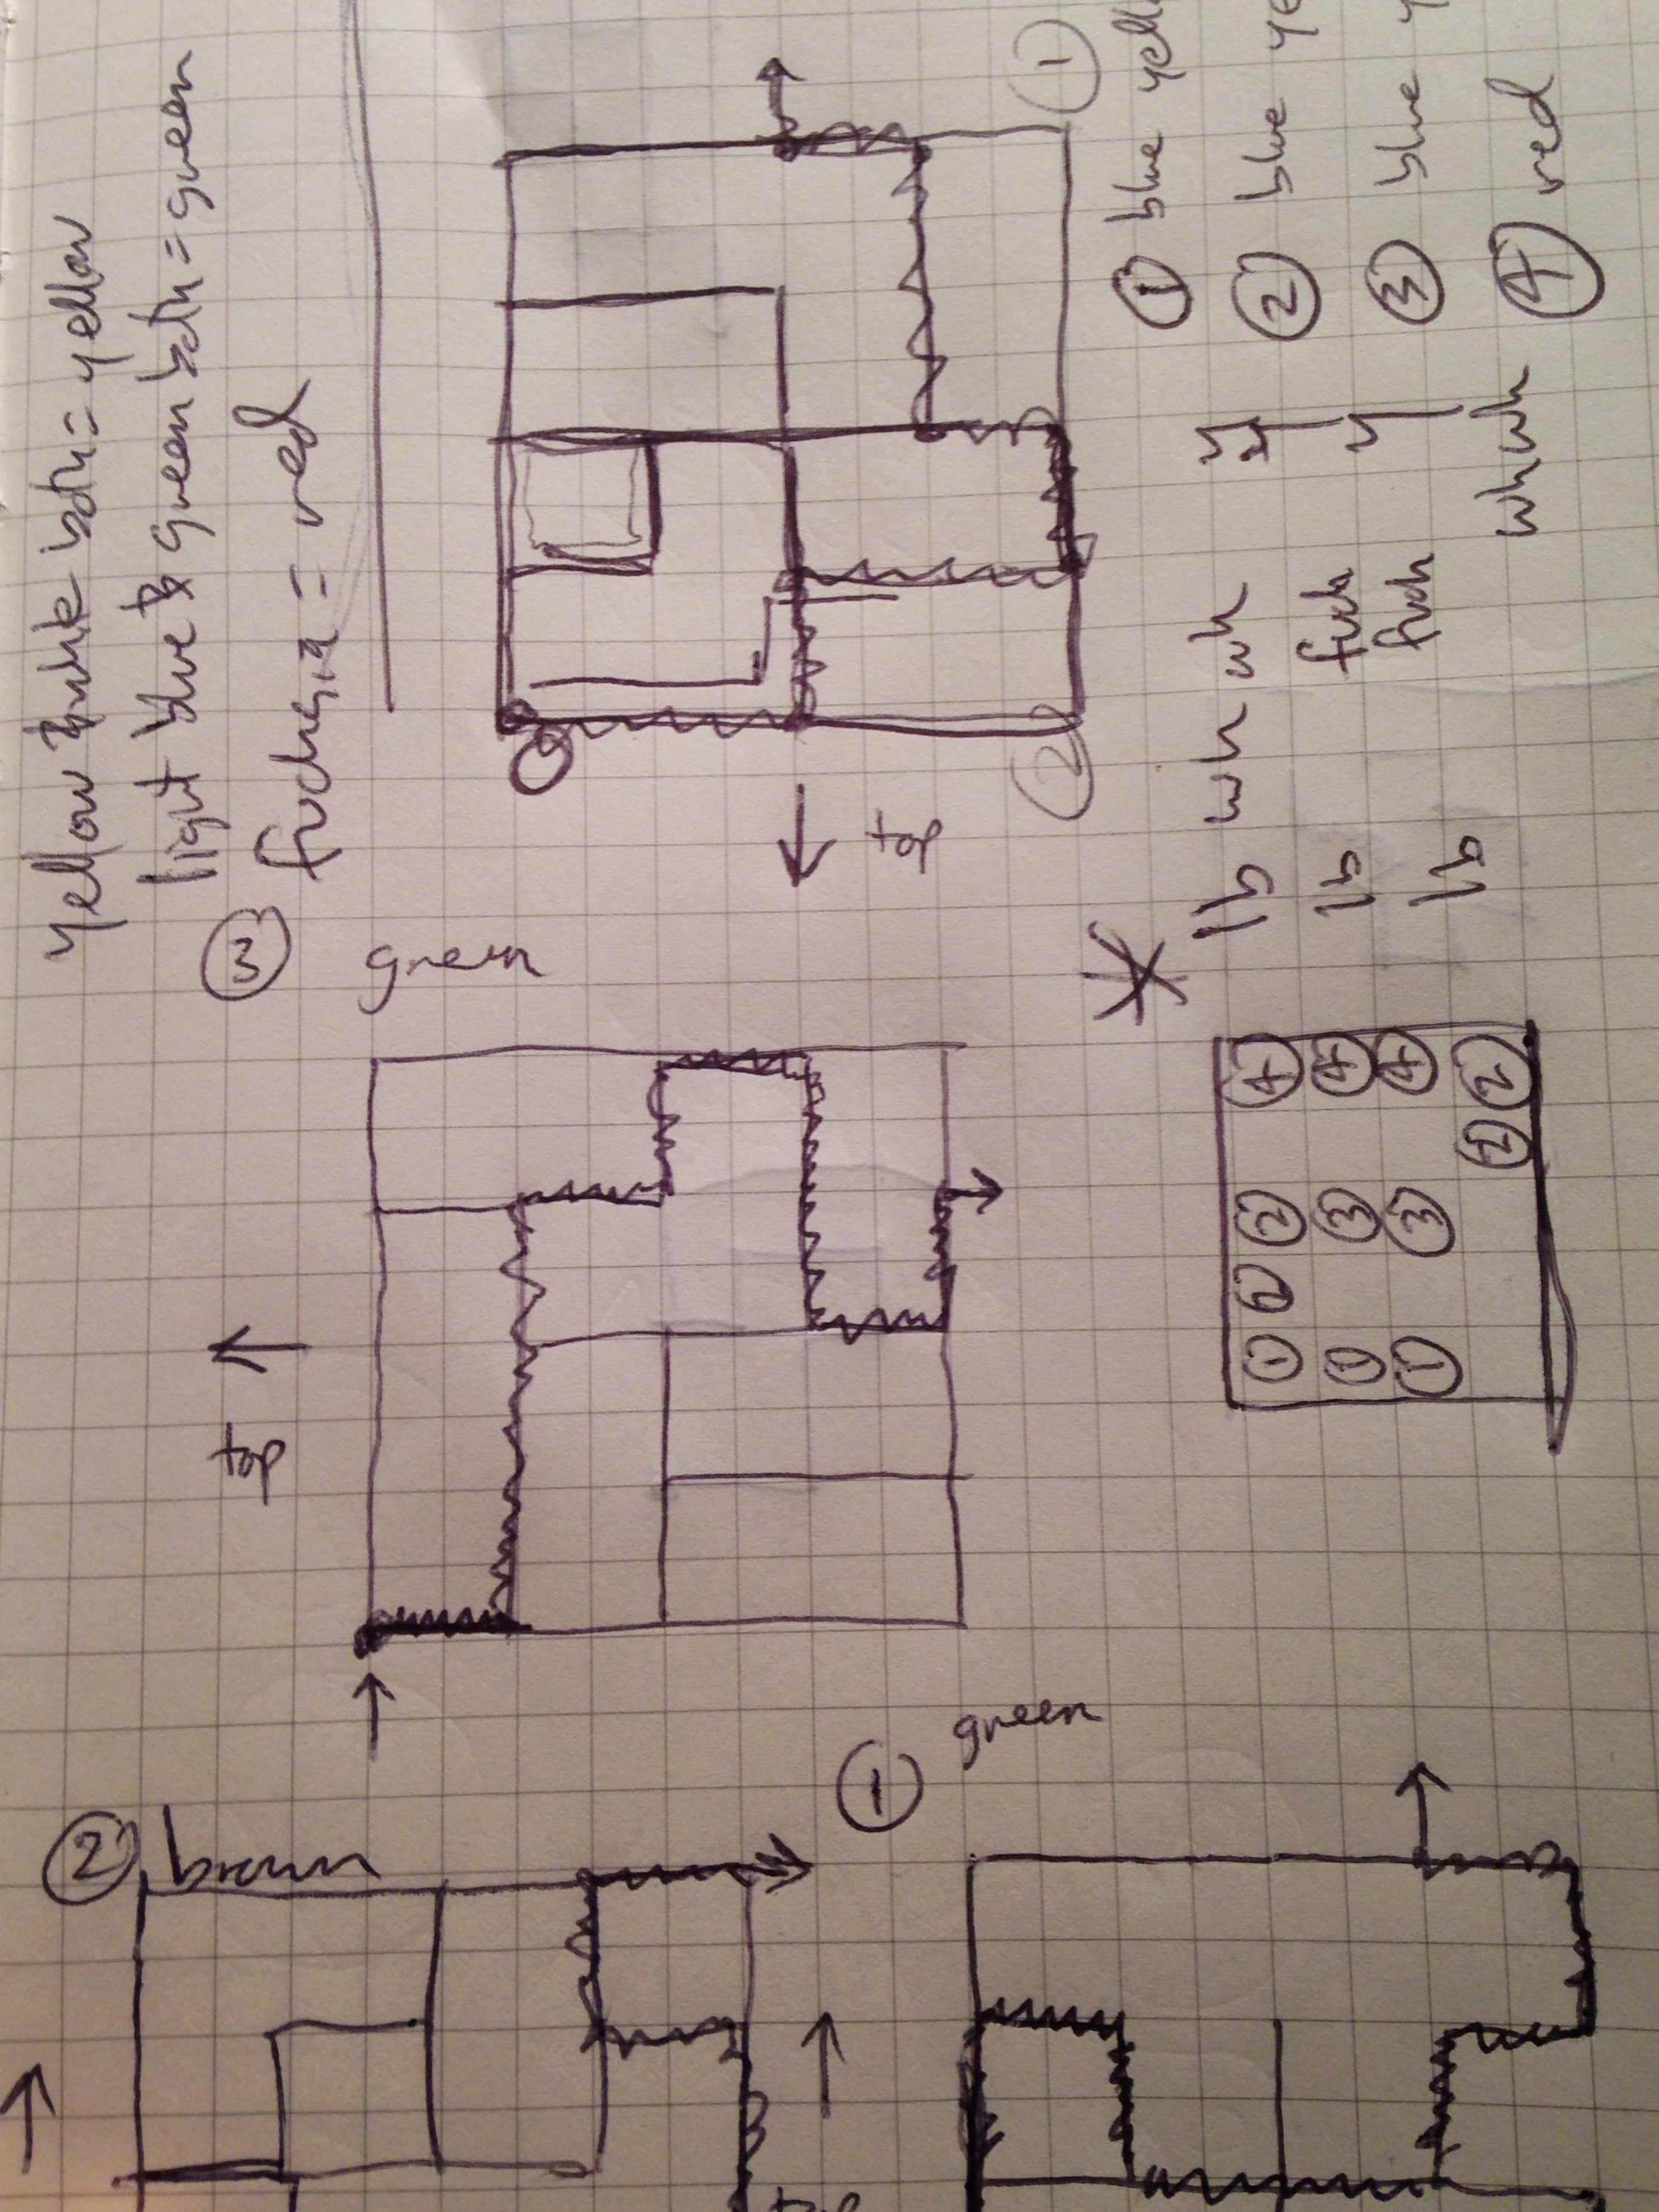 yellow & pink both = yellow
light blue & green both = green
fuchsia = red
③ green
top
top
①
②
① blue yell
② blue ye
③ blue y
④ red
*
lb wh wh y
lb fuch y
lb fuch y
wh wh
④ ④ ④ ②
②
② ③ ③
②
① ① ①
② brown
① green
top